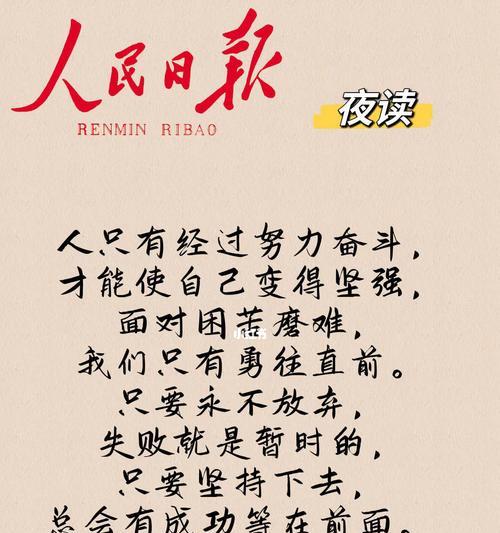 人民日报
RENMIN RIBAO
夜读
人只有经过努力奋斗，
才能使自己变得坚强，
面对困苦磨难，
小红书
我们只有勇往直前。
只要永不放弃，
失败就是暂时的，
只要坚持下去，
总会有成功等在前面。